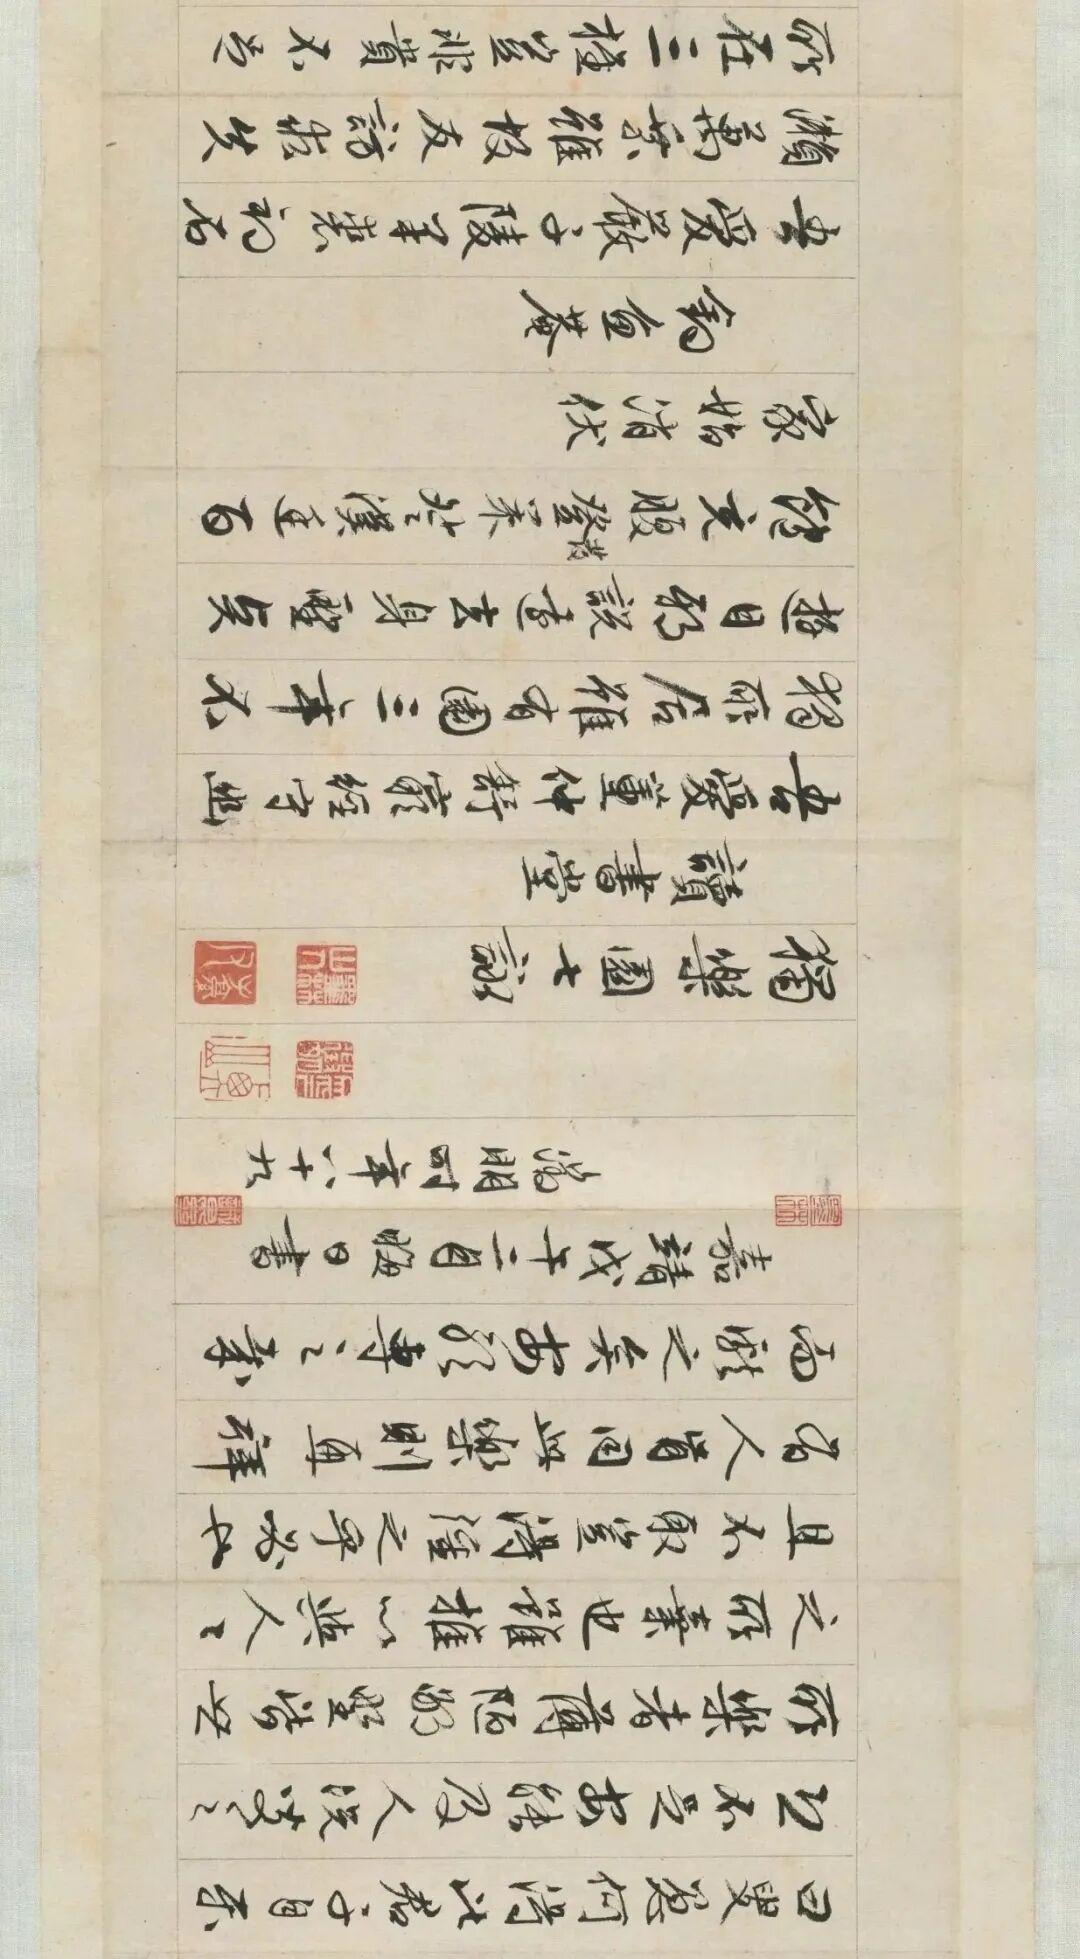 曰叟愚何得比君子自樂
已不足安能及人況叟之
所樂者薄陋鄙野皆世
之所棄也雖推以與人〻
且不取豈得強之乎必也
有人肯同此樂則再拜
而獻之矣安敢專之哉
嘉靖戊午二月晦日書
徵明時年八十九
獨樂園七詠
讀書堂
吾愛董仲舒窮經守幽
獨所居雖有園三年不
遊目邪說遠去身聖言
飽充腹發策登漢庭百
家始消伏
釣魚菴
吾愛嚴子陵羊裘釣石
瀨萬乘雖故友訪求失
所在三旌豈非貴不足